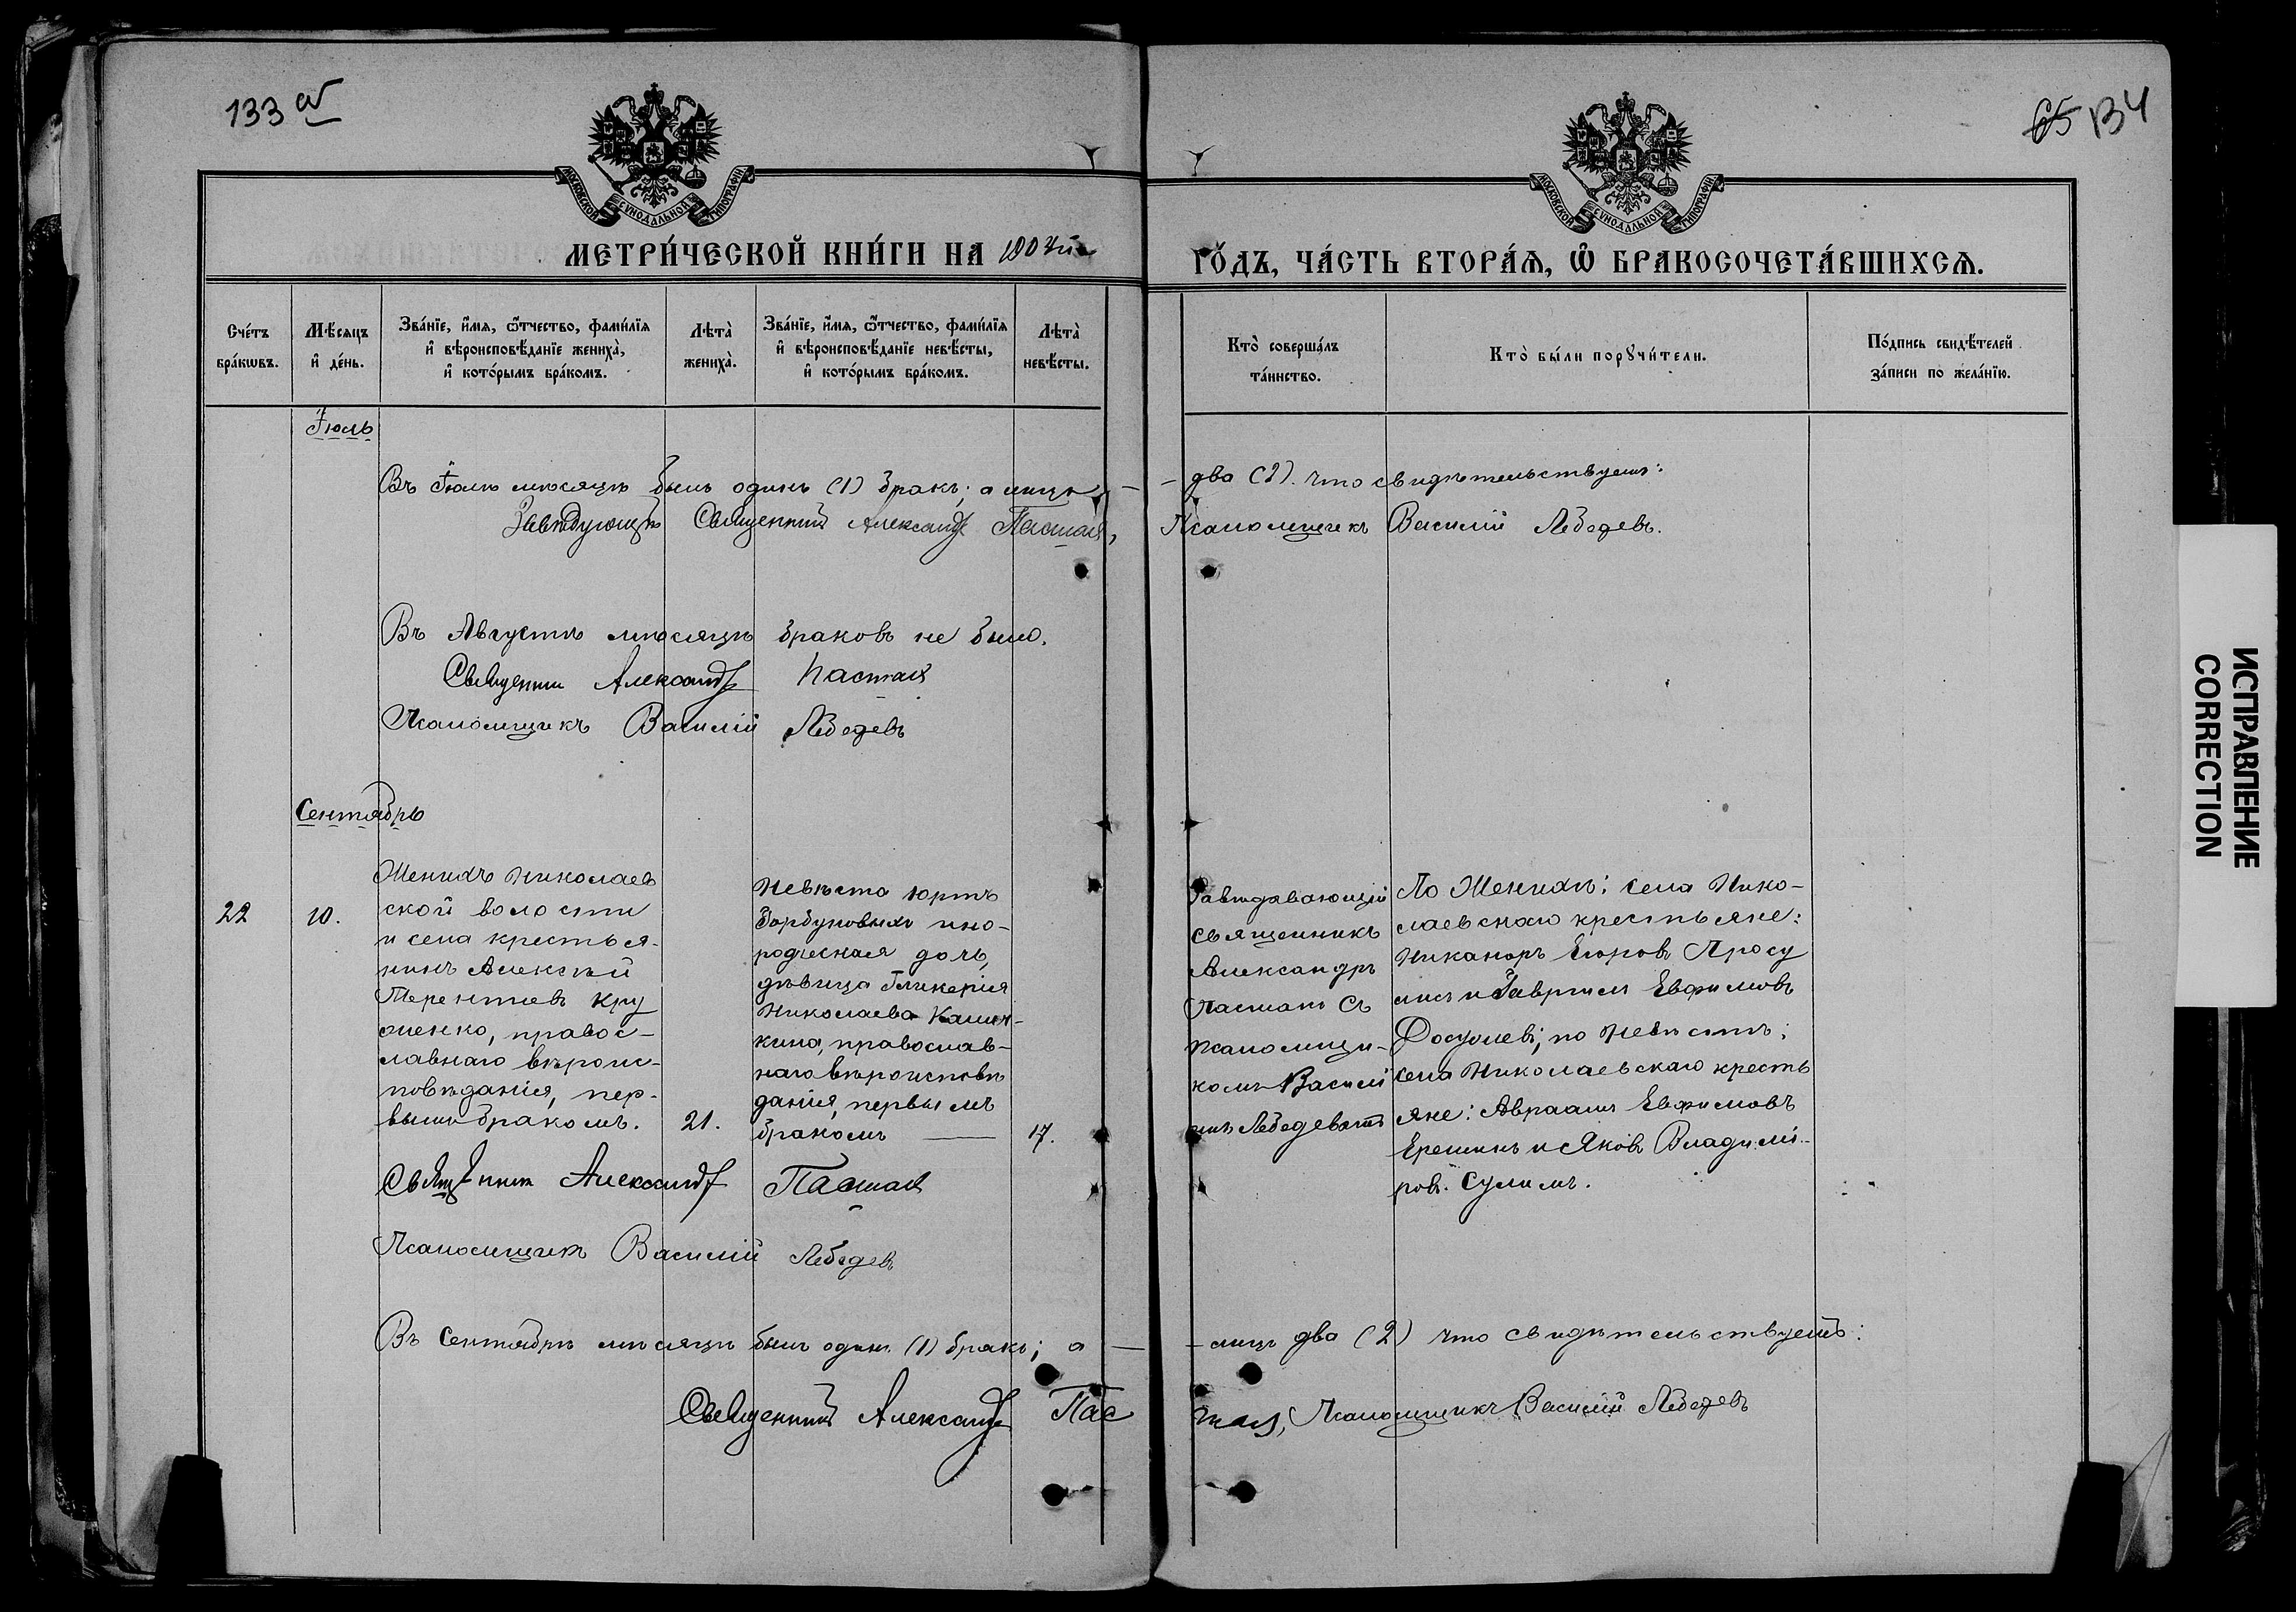 133 об
65 134
МОСКОВСКОЙ СѴНОДАЛЬНОЙ ТИПОГРАФІИ
МОСКОВСКОЙ СѴНОДАЛЬНОЙ ТИПОГРАФІИ
МЕТРИ́ЧЕСКОЙ КНИ́ГИ НА
ГО́ДЪ, ЧА́СТЬ ВТОРА́Ѧ, Ѽ БРАКОСОЧЕТА́ВШИХСѦ.
Сче́тъ бра́кѡвъ.
Мѣ́сяцъ и҆ де́нь.
Зва́нїе, и҆́мя, ѻ҆́тчество, фами́лїя и҆ вѣроисповѣ́данїе жениха̀, и҆ кото́рымъ бра́комъ.
Лѣта̀ жениха̀.
Зва́нїе, и҆́мя, ѻ҆́тчество, фами́лїя и҆ вѣроисповѣ́данїе невѣ́сты, и҆ кото́рымъ бра́комъ.
Лѣта̀ невѣ́сты.
Кто̀ соверша́лъ та́инство.
Кто̀ бы́ли порꙋчи́тели.
По́дпись свидѣ́телей за́писи по жела́нїю.
Іюль
Въ Іюлѣ мѣсяцѣ былъ одинъ (1) бракъ; а лицъ —
— два (2). что свидѣтельствуемъ:
Завѣдующій Священникъ Александръ Пастакъ,
Псаломщикъ Василій Лебедевъ.
Въ Августѣ мѣсяцѣ браковъ не было.
Священникъ Александръ Пастакъ
Псаломщикъ Василій Лебедевъ
Сентябрь
22
10.
Женихъ Николаев
ской волости
и села крестья-
нинъ Алексѣй
Терентіевъ Кру
ченко, правос-
лавнаго вѣроис-
повѣданія, пер-
вымъ бракомъ.
21.
Невѣста юртъ
Барбуковыхъ ино-
родческая дочь,
дѣвица Гликерія
Николаева
кина, православ-
наго вѣроисповѣ
данія, первымъ
бракомъ —
17.
Завѣдавающій
священникъ
Александръ
Пастакъ съ
псаломщи-
комъ Василі
емъ Лебедевымъ
По Женихѣ: села Нико-
лаевскаго крестьяне:
Никаноръ Егоровъ
и Гавріилъ Евфимовъ
по Невѣстѣ:
села Николаевскаго кресть
яне: Авраамъ Евфимовъ
Ерешинъ и Яковъ Владимі-
ровъ. Сулимъ.
Священникъ Александръ Пастакъ
Псаломщикъ Василій Лебедевъ
Въ Сентябрѣ мѣсяцѣ былъ одинъ (1) бракъ; а —
— лицъ два (2) что свидѣтельствуемъ:
Священникъ Александръ Пас
такъ, Псаломщикъ Василій Лебедевъ
ИСПРАВЛЕНИЕ
CORRECTION